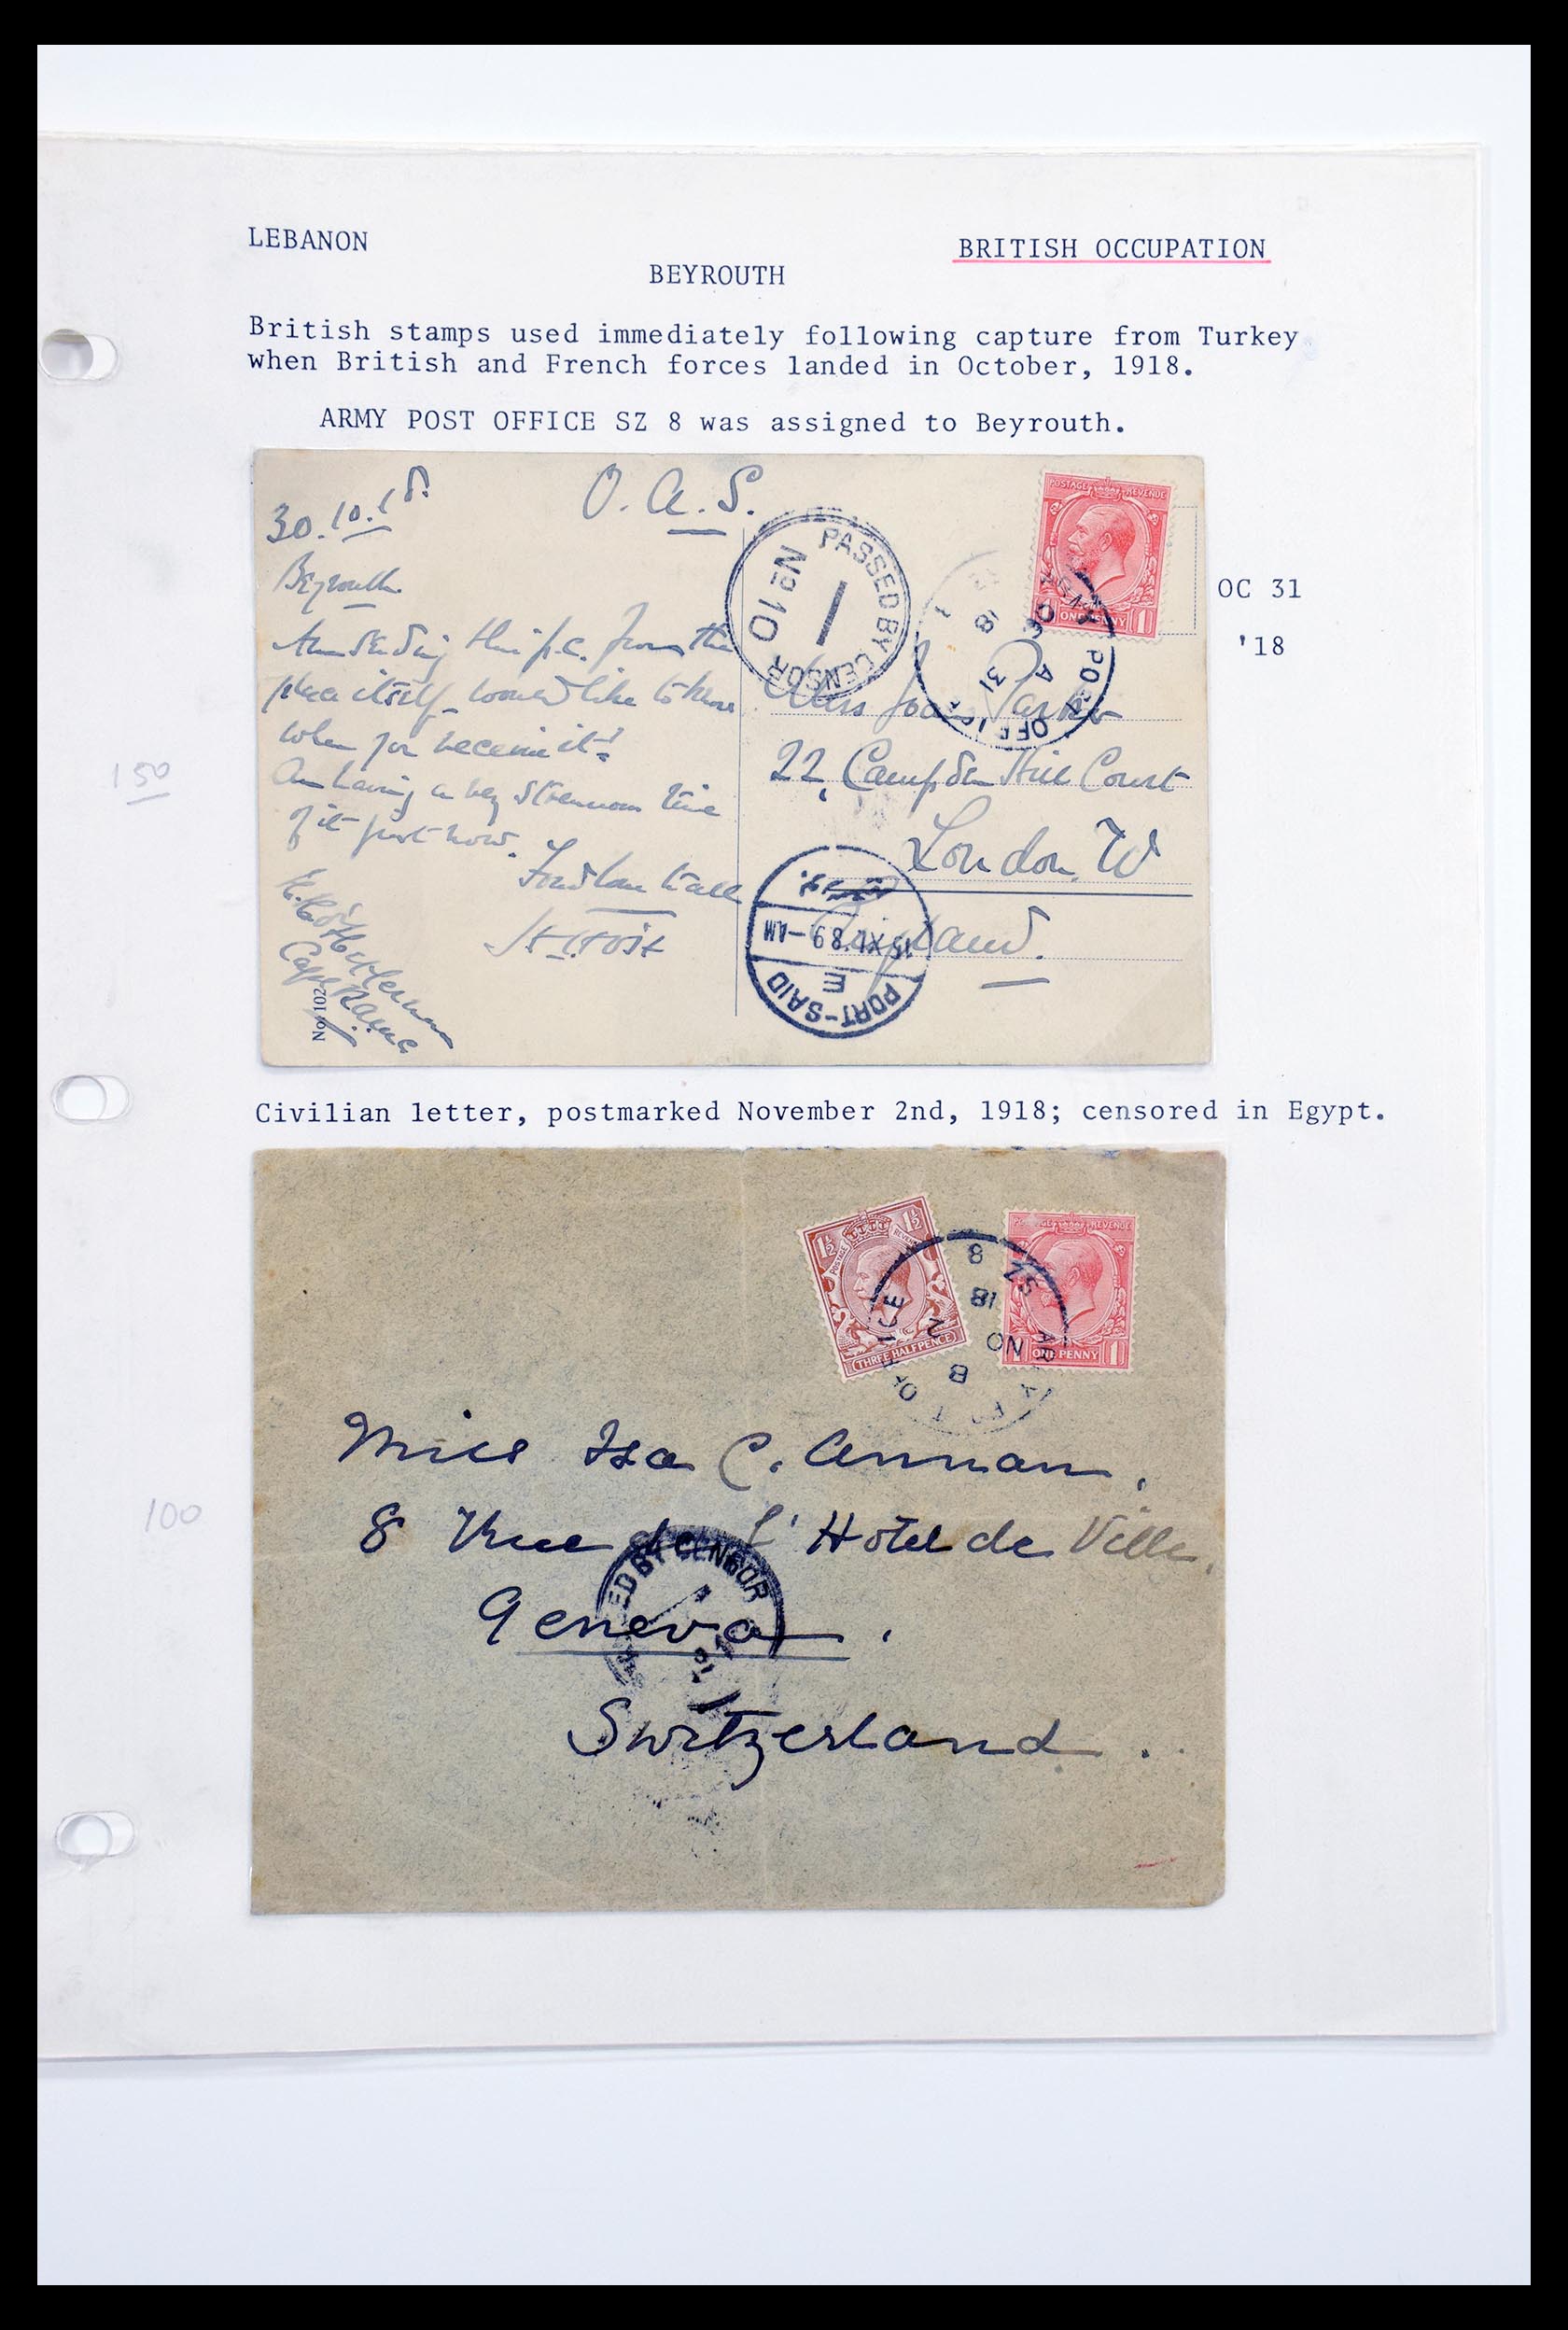 LEBANON
BRITISH OCCUPATION
BEYROUTH
British stamps used immediately following capture from Turkey
when British and French forces landed in October, 1918.
ARMY POST OFFICE SZ 8 was assigned to Beyrouth.
30.10.18.
O.A.S.
Beyrouth
Am sending this p.c. from the
place itself – would like to know
when you receive it!
Am having a very strenuous time
of it just now.
Fondlove to all
Capt. R.A.M.C.
No. 102
PASSED BY CENSOR
No 10
POSTAGE REVENUE
ONE PENNY 1
ARMY POST OFFICE
A
OC 31
18
OC 31
'18
Miss Joan Parker
22, Campden Hill Court
London. W
England.
PORT-SAID
E
15 XI. 8 9-AM
150
Civilian letter, postmarked November 2nd, 1918; censored in Egypt.
1½ 1½
POSTAGE REVENUE
THREE HALFPENCE
POSTAGE REVENUE
ONE PENNY 1
ARMY POST OFFICE
SZ 8
B
NO 2
18
Miss Isa C. Annan.
8 Rue de l'Hotel de Ville.
Geneva.
Switzerland.
ED BY CENSOR
100